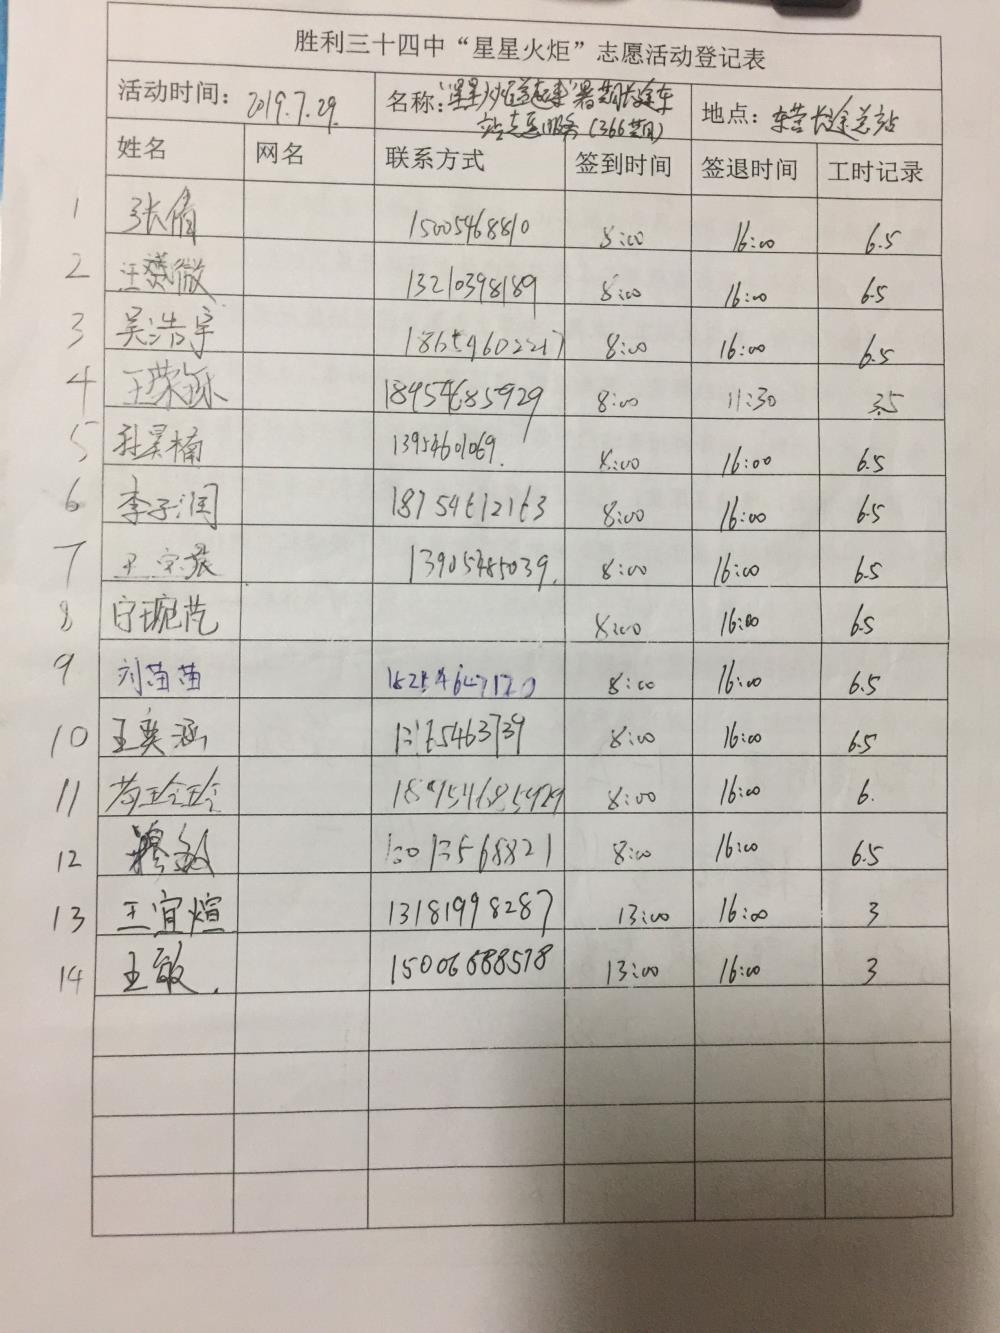 胜利三十四中“星星火炬”志愿活动登记表
活动时间：2019.7.29. 名称：“星星火炬 暑期长途车 地点：东营长途总站
站志愿服务（366期）
姓名 网名 联系方式 签到时间 签退时间 工时记录
1 张值 15005468810 8:00 16:00 6.5
2 微 13210398189 8:00 16:00 6.5
3 吴浩宇 18654602217 8:00 16:00 6.5
4 王荣 18954685929 8:00 11:30 3.5
5 昊楠 13954601069. 8:00 16:00 6.5
6 李子润 8:00 16:00 6.5
7 王宗 13905465039. 8:00 16:00 6.5
8 宁琬 8:00 16:00 6.5
9 刘苗苗 18254647120 8:00 16:00 6.5
10 王奕涵 8:00 16:00 6.5
11 玲玲 18954685929 8:00 16:00 6.
12 穆敏 8:00 16:00 6.5
13 王宜煊 13181998287 13:00 16:00 3
14 王敏. 15006688578 13:00 16:00 3